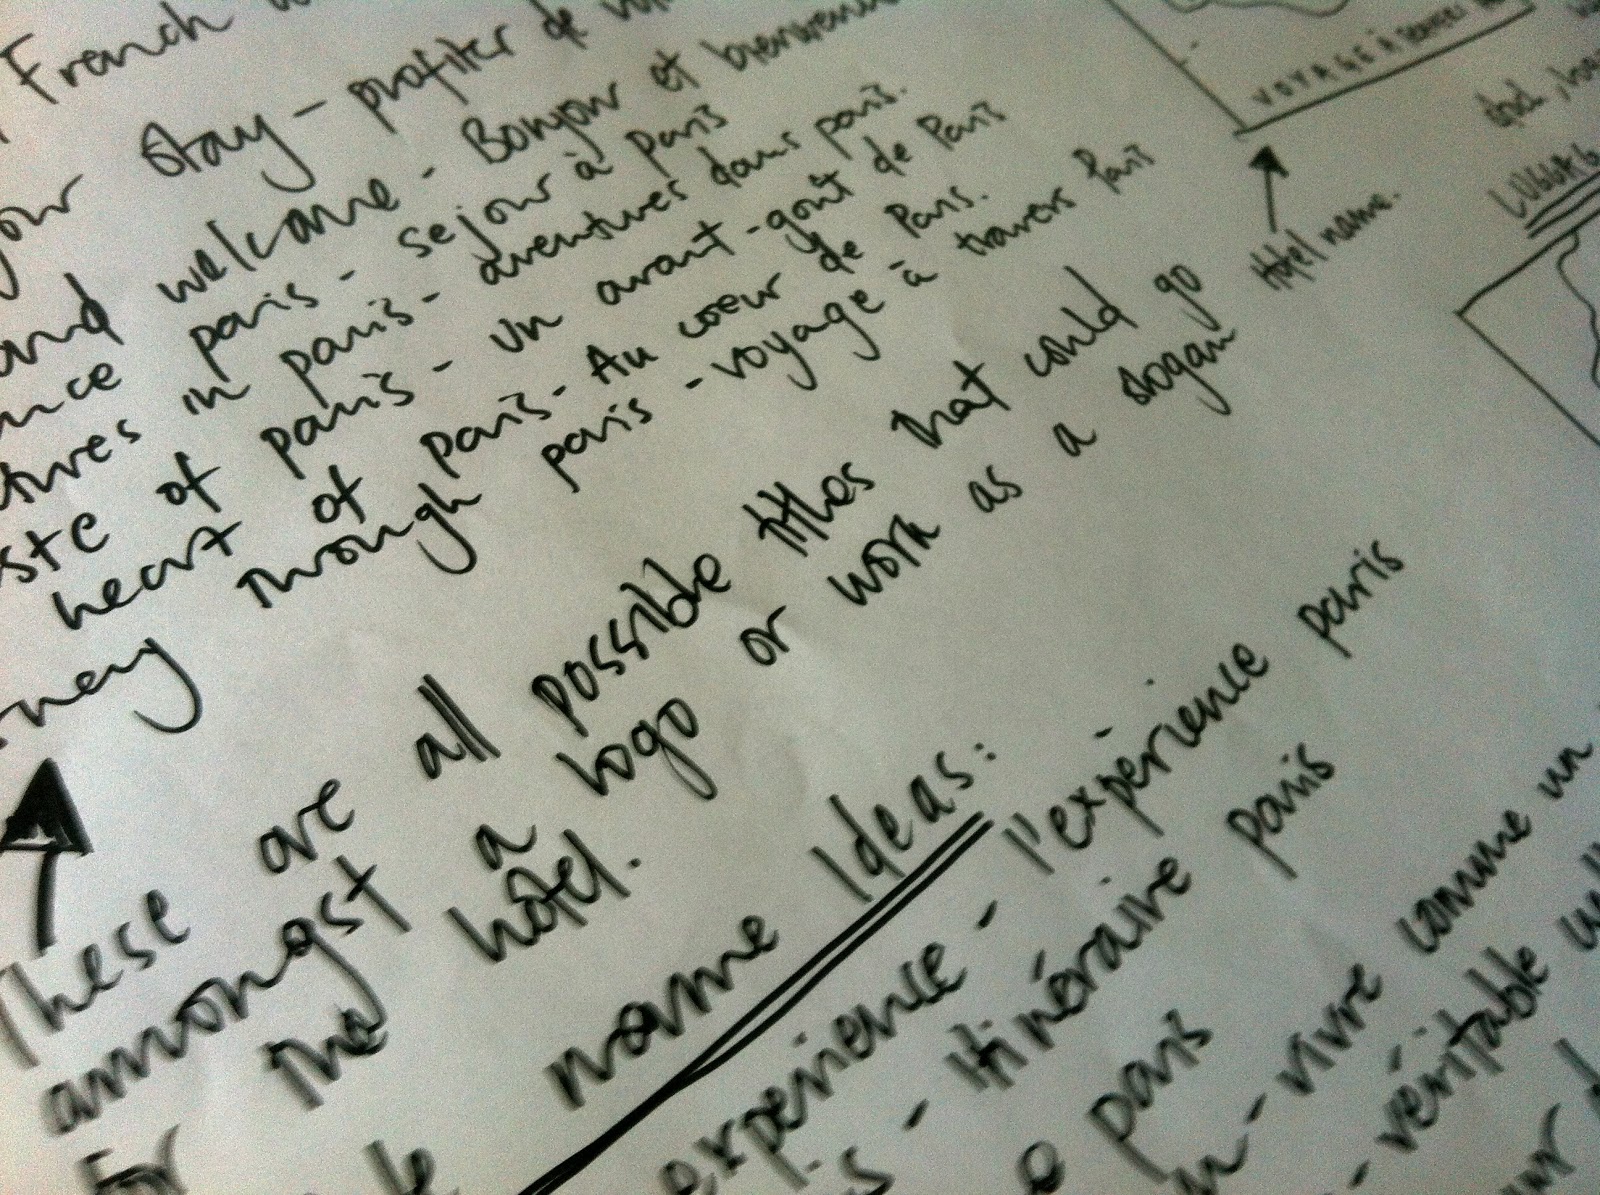 French
stay - profiter de
and welcome - Bonjour et
paris - sejour à paris
in paris - aventures dans paris.
of paris - un avant-goût de Paris
heart of paris - Au coeur de Paris.
through paris - voyage à travers Paris
These are all possible titles that could go
amongst a logo or work as a slogan
for the hotel.
name Ideas:
experience - l'expérience paris
- Itinéraire paris
paris
- vivre comme un
- véritable
VOYAGE À
Hotel name.